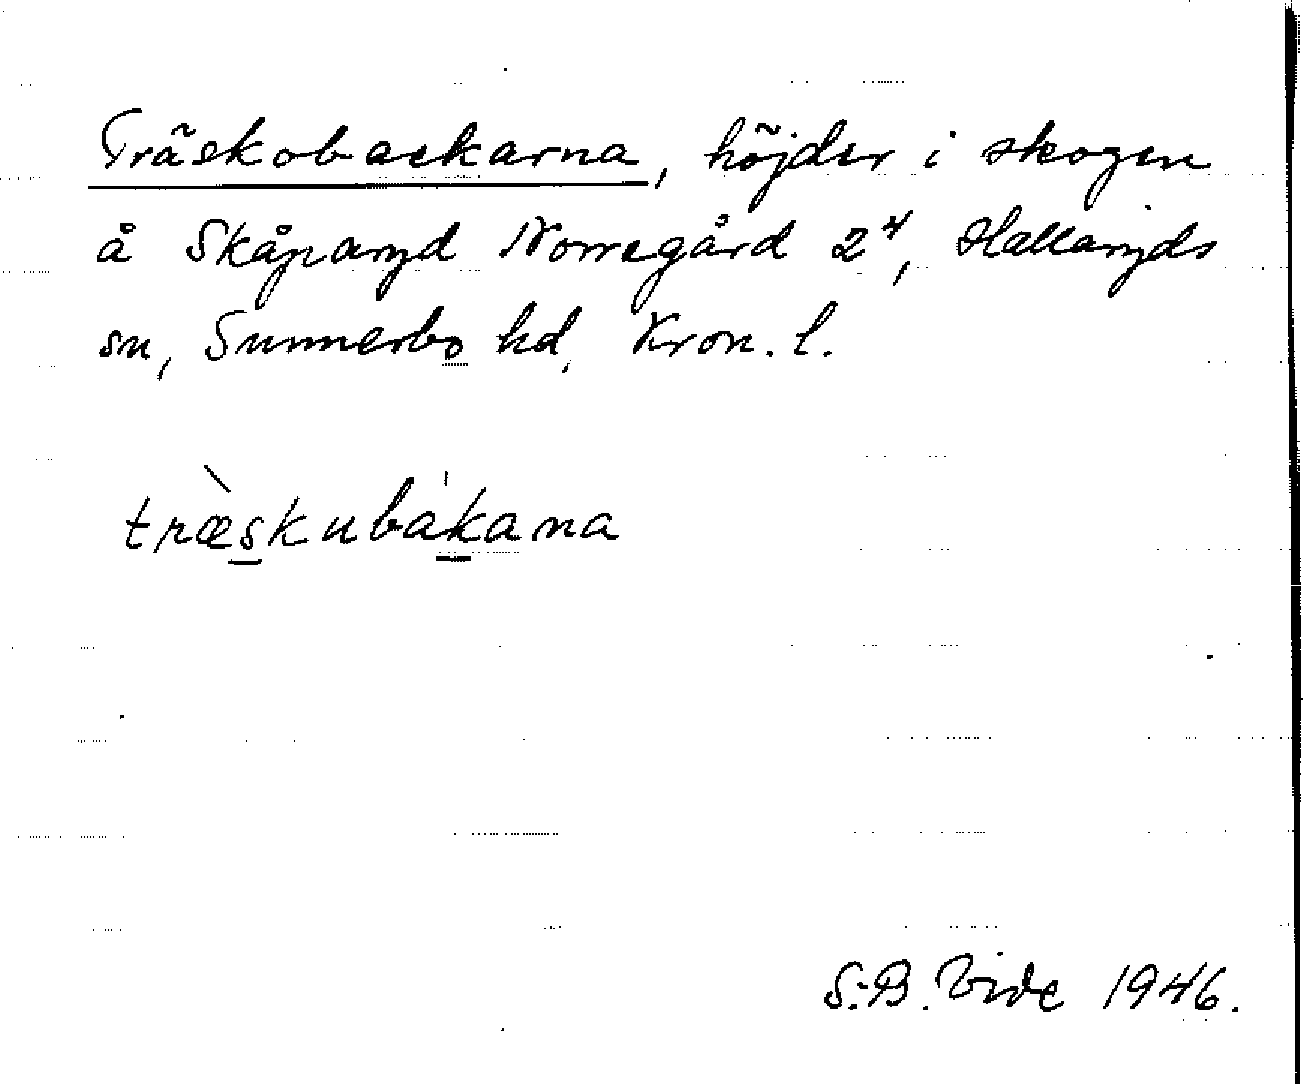 Träskobackarna, höjder i skogen
å Skåparyd Norregård 2⁴, Hallaryds
sn, Sunnerbo hd, Kron. l.
træ̀skubákana
S.B. Vide 1946.